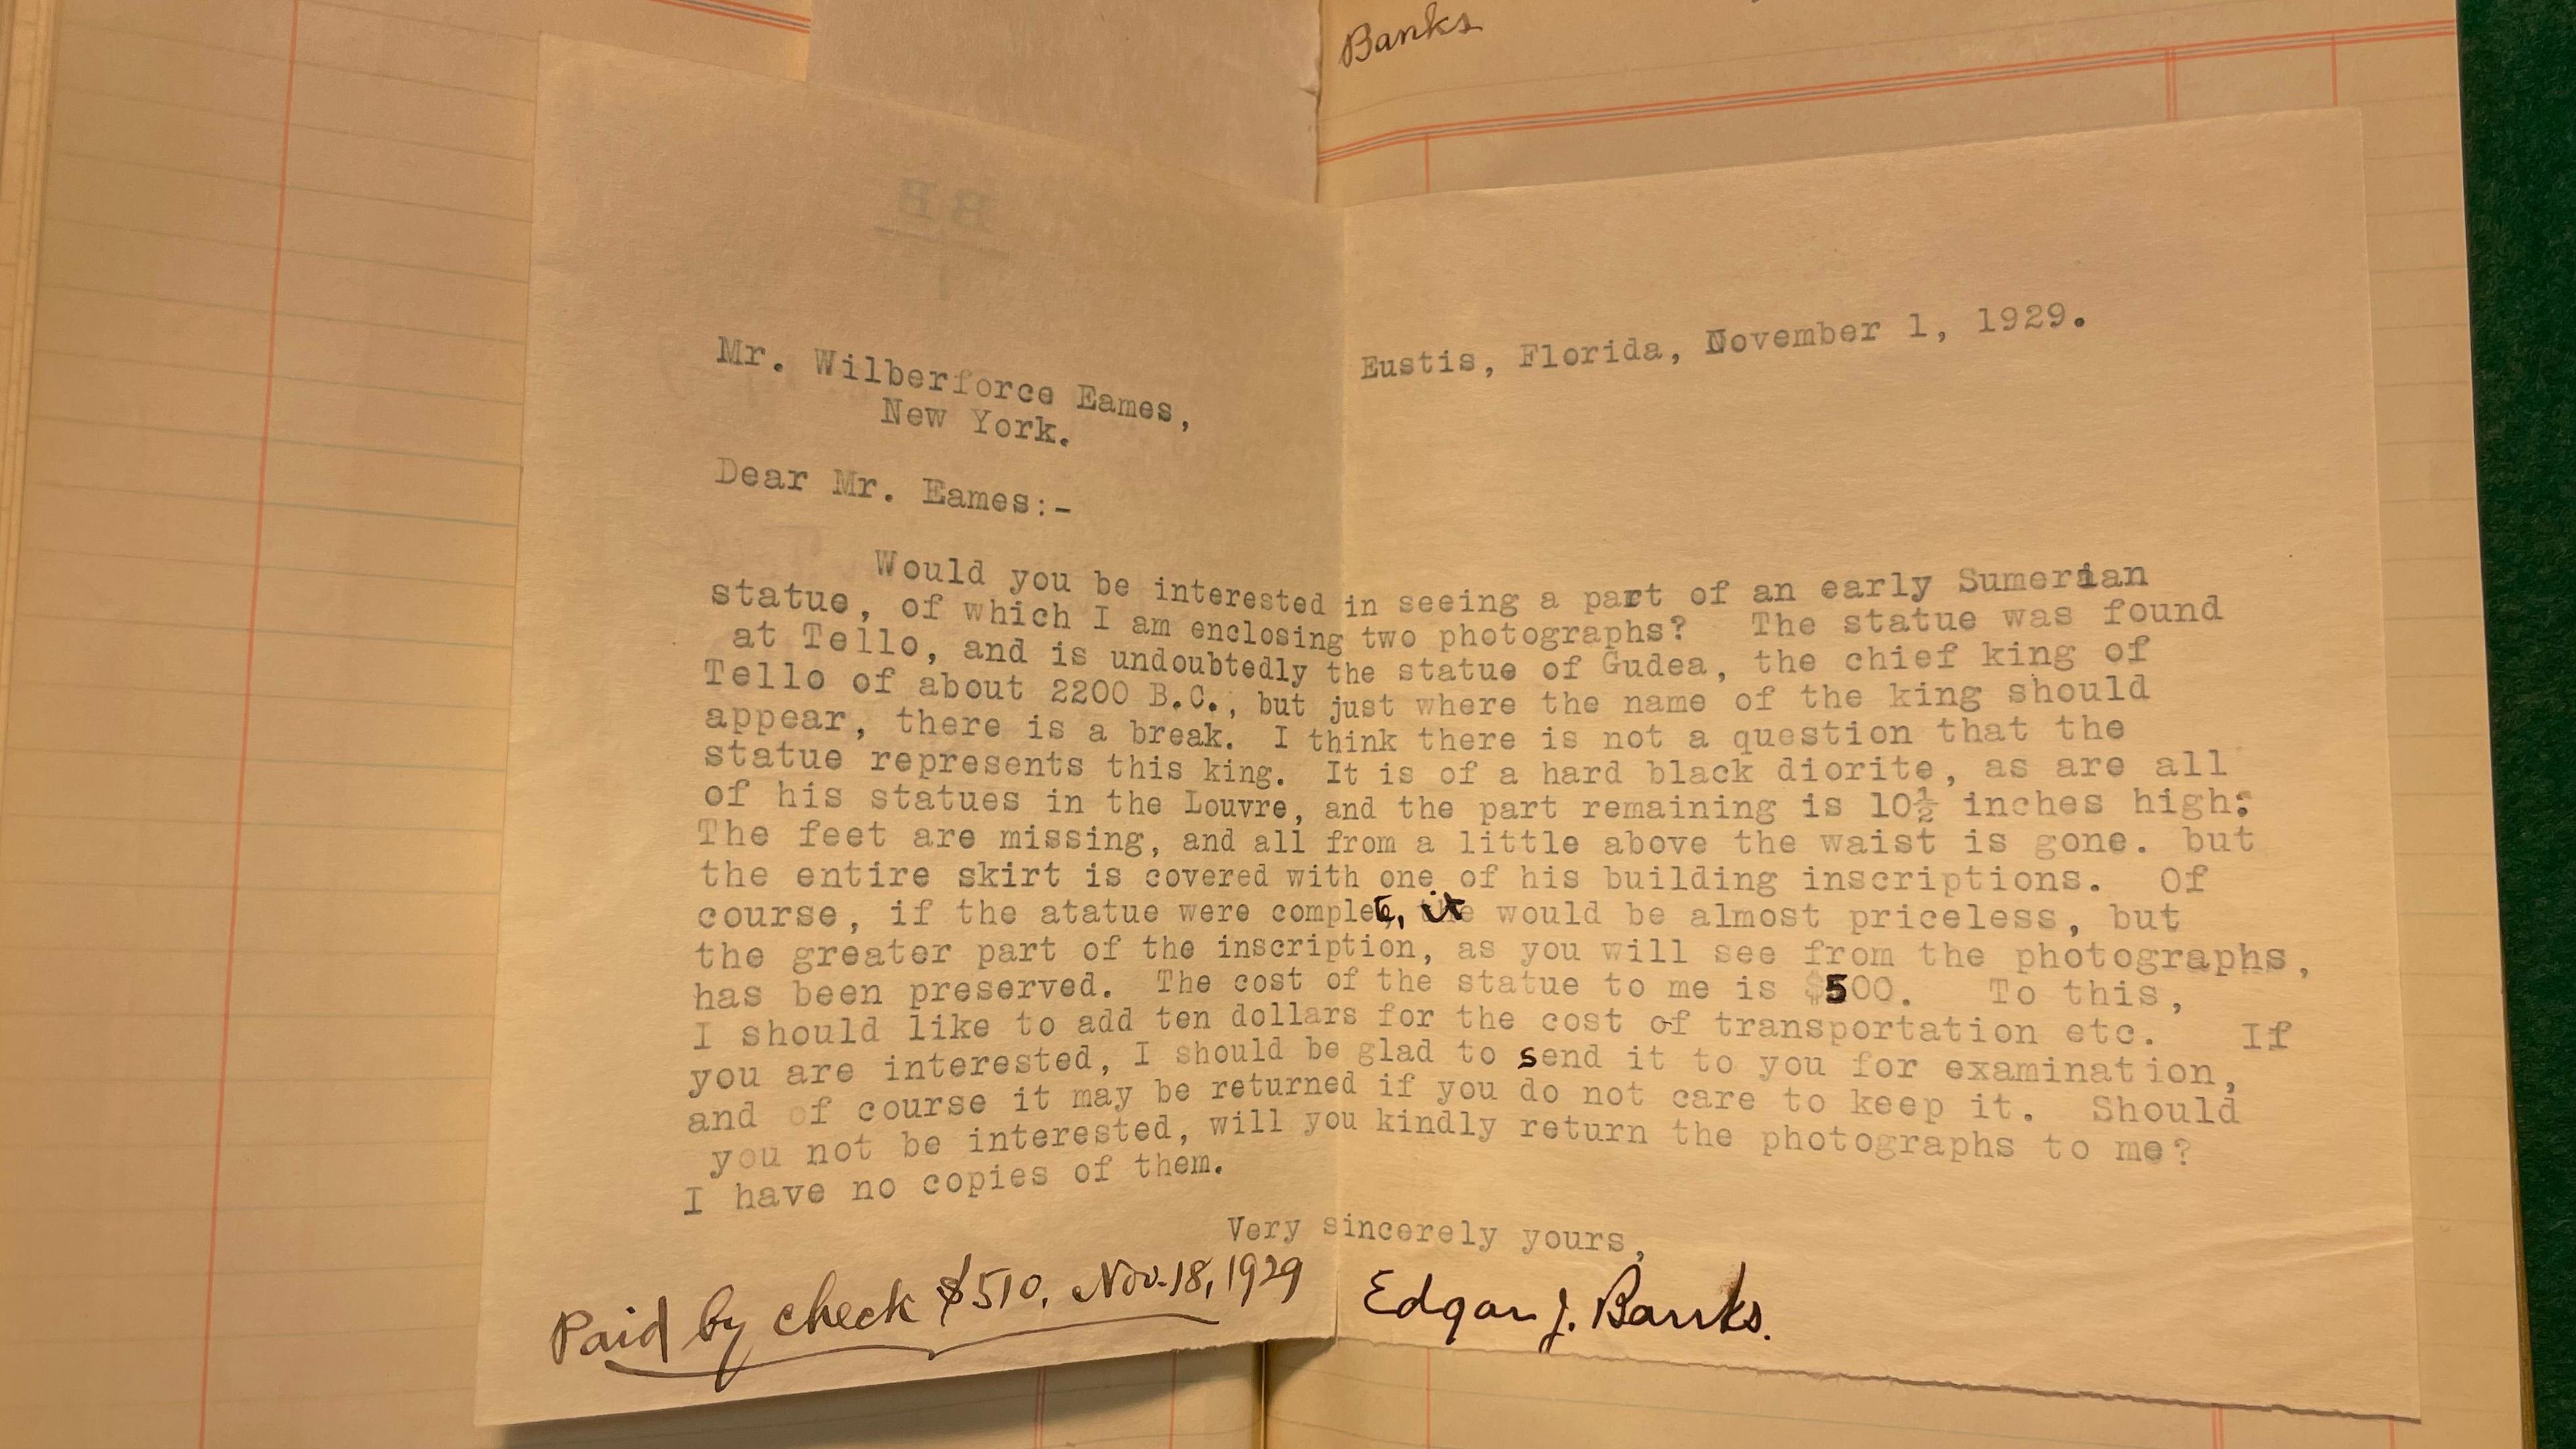 Banks
Eustis, Florida, November 1, 1929.
Mr. Wilberforce Eames,
New York.
Dear Mr. Eames:-
Would you be interested in seeing a part of an early Sumerian
statue, of which I am enclosing two photographs? The statue was found
at Tello, and is undoubtedly the statue of Gudea, the chief king of
Tello of about 2200 B.C., but just where the name of the king should
appear, there is a break. I think there is not a question that the
statue represents this king. It is of a hard black diorite, as are all
of his statues in the Louvre, and the part remaining is 10½ inches high:
The feet are missing, and all from a little above the waist is gone. but
the entire skirt is covered with one of his building inscriptions. Of
course, if the atatue were complet, it would be almost priceless, but
the greater part of the inscription, as you will see from the photographs,
has been preserved. The cost of the statue to me is $500. To this,
I should like to add ten dollars for the cost of transportation etc. If
you are interested, I should be glad to send it to you for examination,
and of course it may be returned if you do not care to keep it. Should
you not be interested, will you kindly return the photographs to me?
I have no copies of them.
Very sincerely yours,
Edgar J. Banks.
Paid by check $510. Nov. 18, 1929